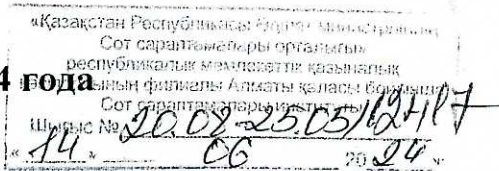 «Қазақстан Республикасы Әділет министрлігінің
Сот сараптамалары орталығы»
республикалық мемлекеттік қазыналық
филиалы Алматы қаласы бойынша
4 года
Сот сараптамалары институты
Шығыс №
« 14 » 06 20 24